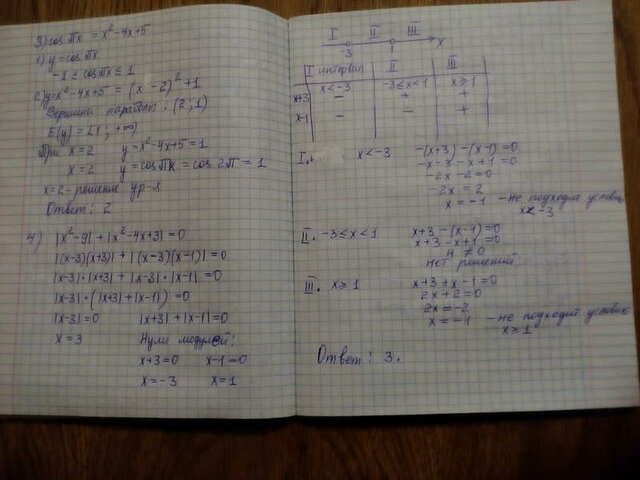 3) cos πx = x² - 4x + 5
1) y = cos πx
-1 ≤ cos πx ≤ 1
2) y = x² - 4x + 5 = (x - 2)² + 1
Вершина параболы: (2; 1)
E(y) = [1; +∞)
При x = 2 y = x² - 4x + 5 = 1
x = 2 y = cos πx = cos 2π = 1
x = 2 - решение ур-я
Ответ: 2
4) |x² - 9| + |x² - 4x + 3| = 0
|(x-3)(x+3)| + |(x-3)(x-1)| = 0
|x-3|·|x+3| + |x-3|·|x-1| = 0
|x-3|·(|x+3| + |x-1|) = 0
|x-3| = 0 |x+3| + |x-1| = 0
x = 3 Нули модулей:
x+3=0 x-1=0
x = -3 x = 1
I II III
-3 1 x
I интервал II III
x < -3 -3 ≤ x < 1 x ≥ 1
x+3 - + +
x-1 - - +
I. x < -3 -(x+3) - (x-1) = 0
-x - 3 - x + 1 = 0
-2x - 2 = 0
-2x = 2
x = -1 - не подходит услов.
x < -3
II. -3 ≤ x < 1 x+3 - (x-1) = 0
x+3 - x+1 = 0
4 ≠ 0
нет решений
III. x ≥ 1 x+3 + x - 1 = 0
2x + 2 = 0
2x = -2
x = -1 - не подходит услов.
x ≥ 1
Ответ: 3.